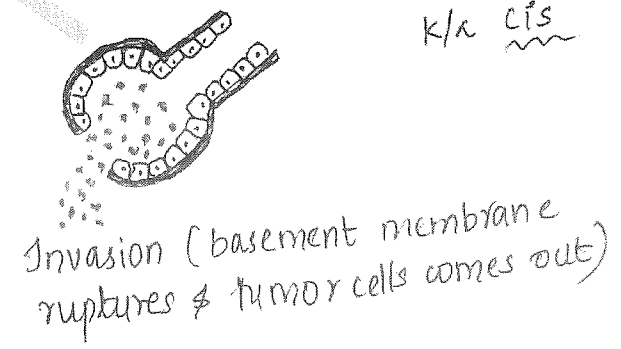 K/a cis
Invasion (basement membrane
ruptures & tumor cells comes out)